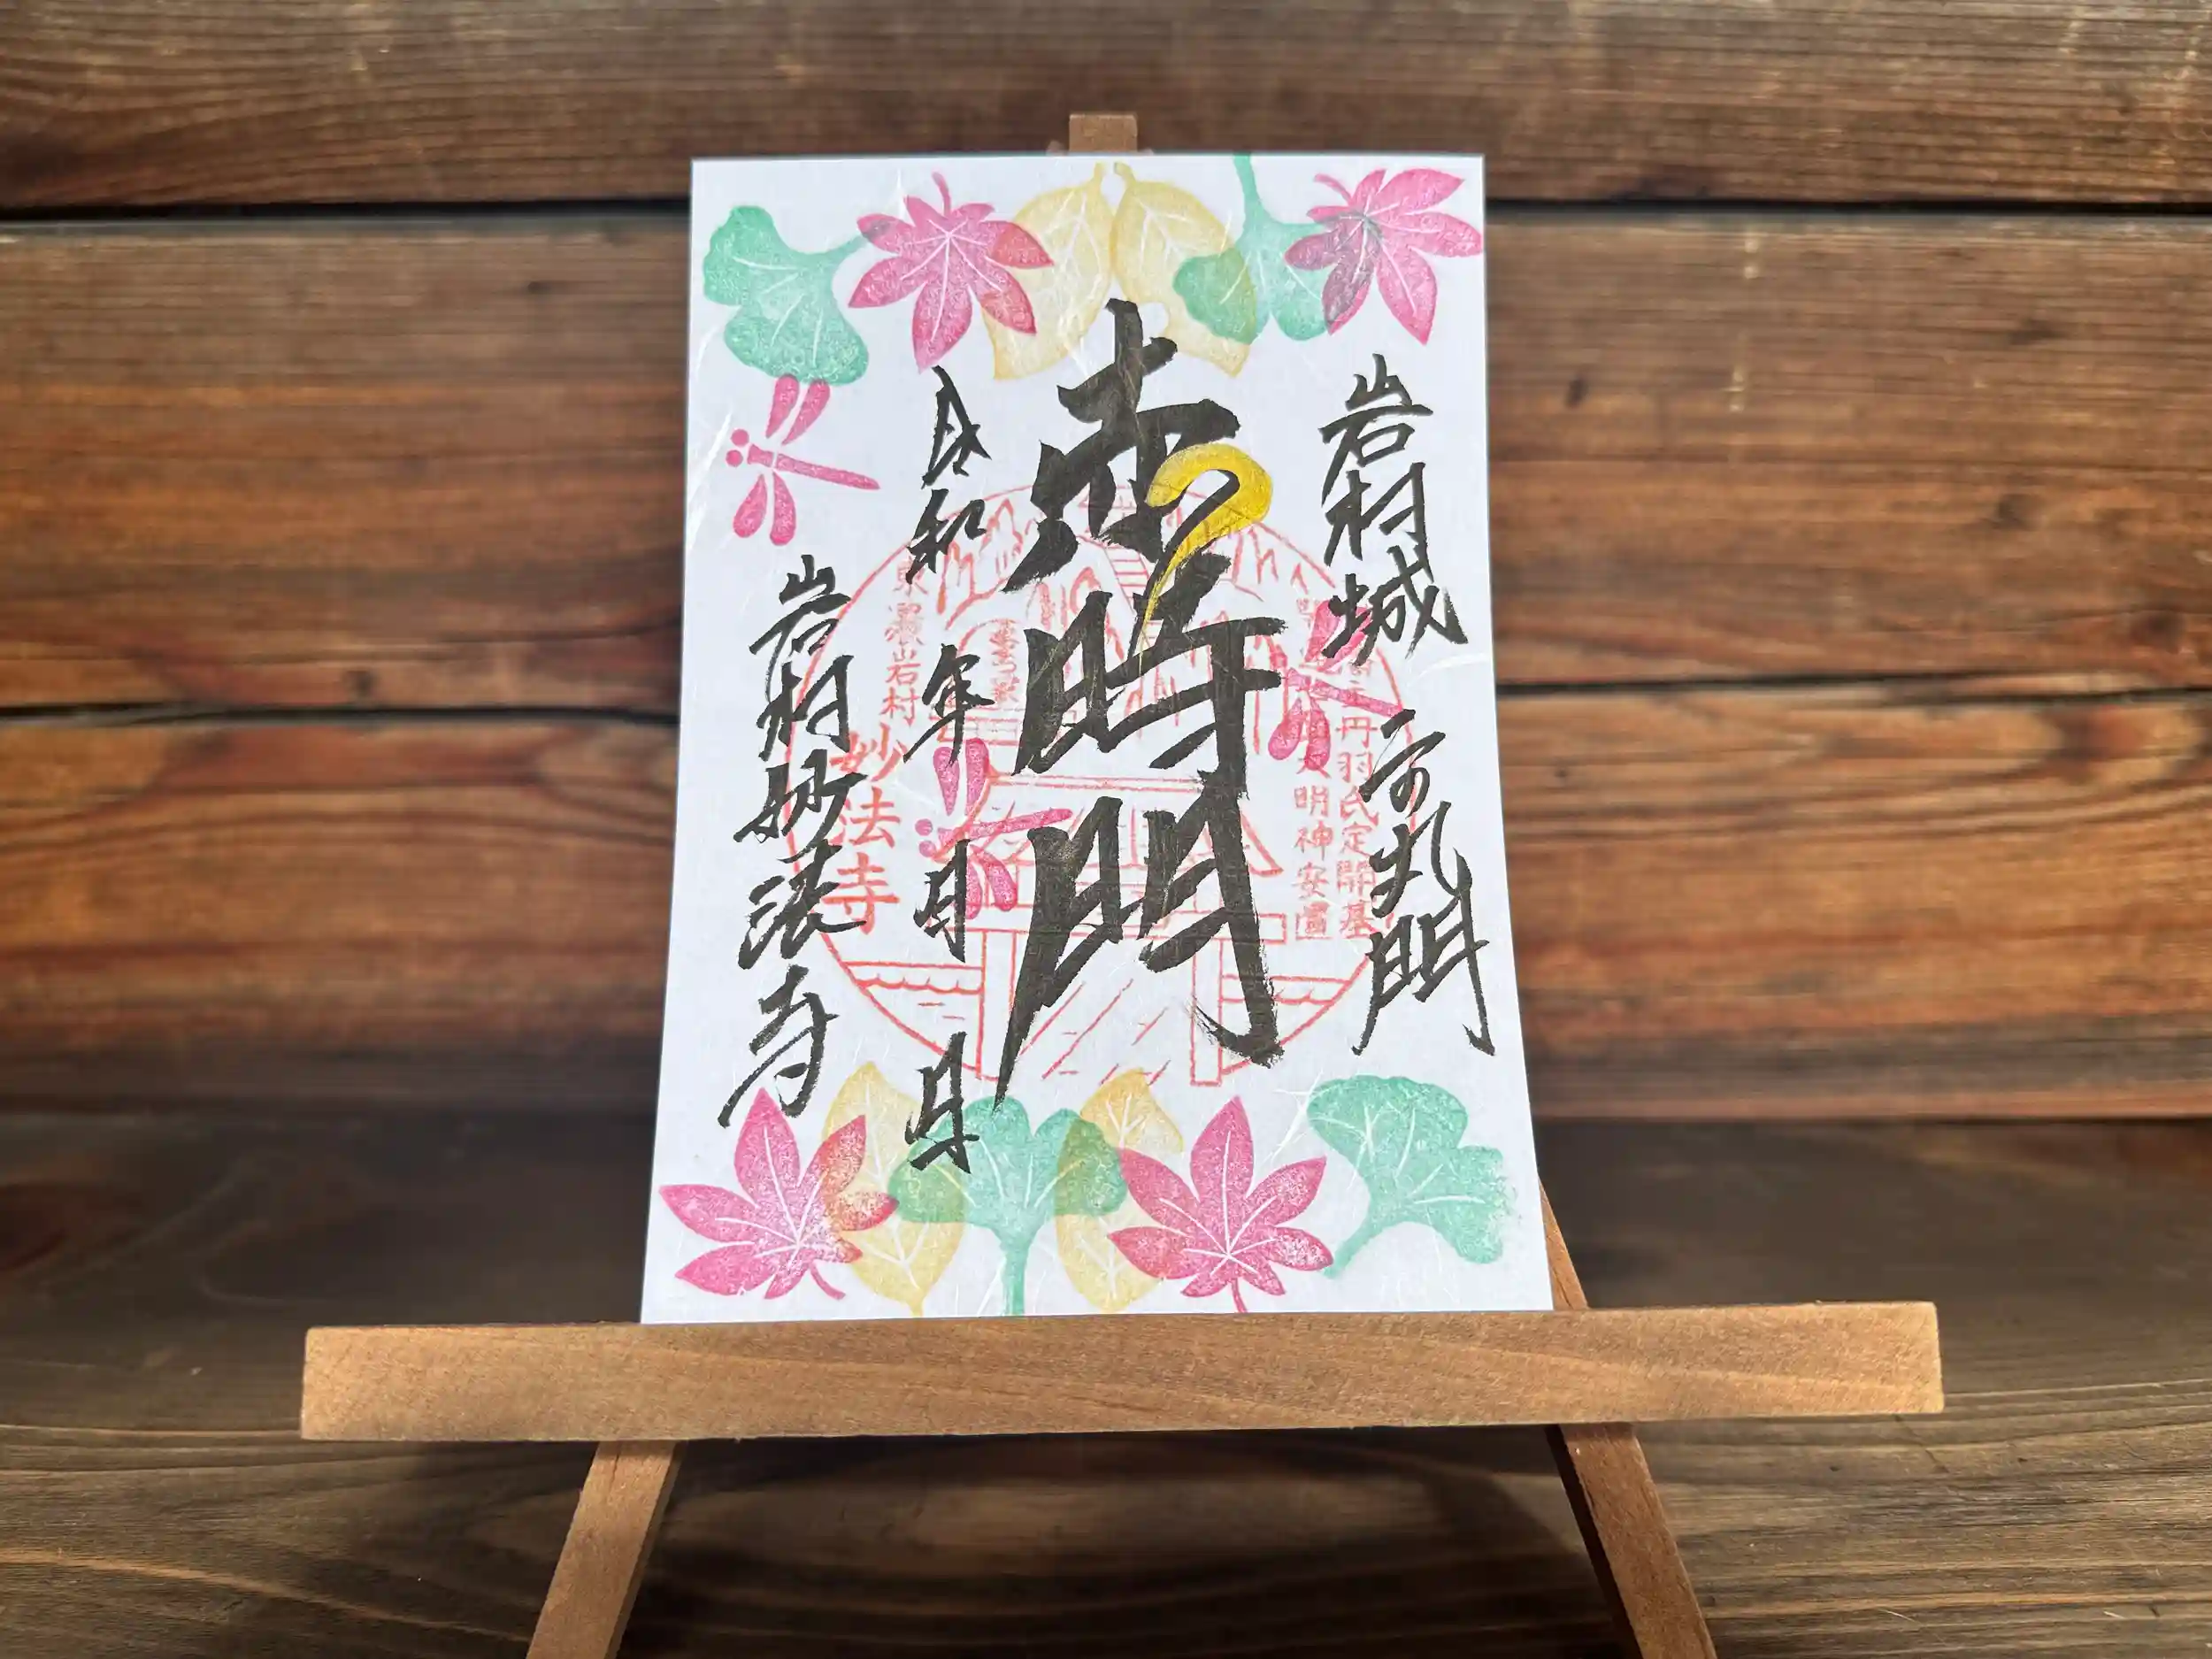 岩村城
二の丸門
赤時門
令和 年 月 日
岩村妙法寺
丹羽氏定開基
大明神安置
東濃岩村
妙法寺